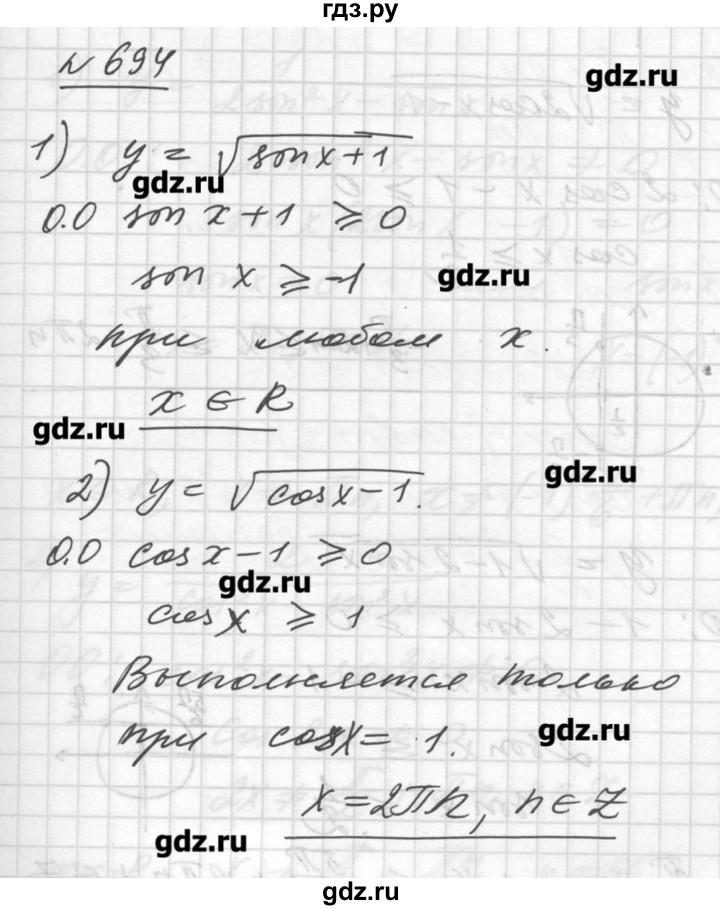 гдз.ру
№ 694
gdz.ru
1) y = √sin x + 1
gdz.ru
0.0 sin x + 1 ⩾ 0
sin x ⩾ -1
gdz.ru
при любом x.
x ∈ R
gdz.ru
gdz.ru
2) y = √cos x - 1.
0.0 cos x - 1 ⩾ 0
gdz.ru
cos x ⩾ 1
Выполняется только
при cos x = 1.
gdz.ru
x = 2πn, n ∈ Z
gdz.ru
gdz.ru